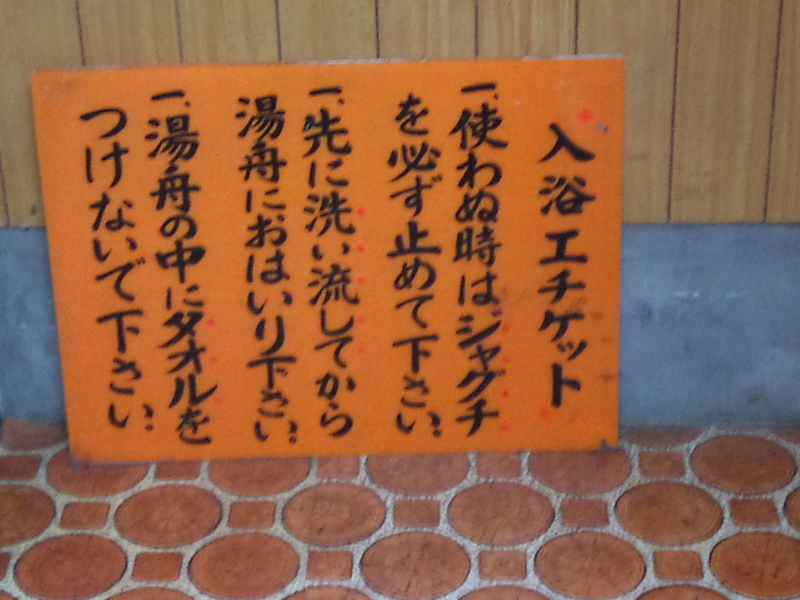 入浴エチケット
一、使わぬ時はジャグチ
を必ず止めて下さい.
一、先に洗い流してから
湯舟におはいり下さい.
一、湯舟の中にタオルを
つけないで下さい.